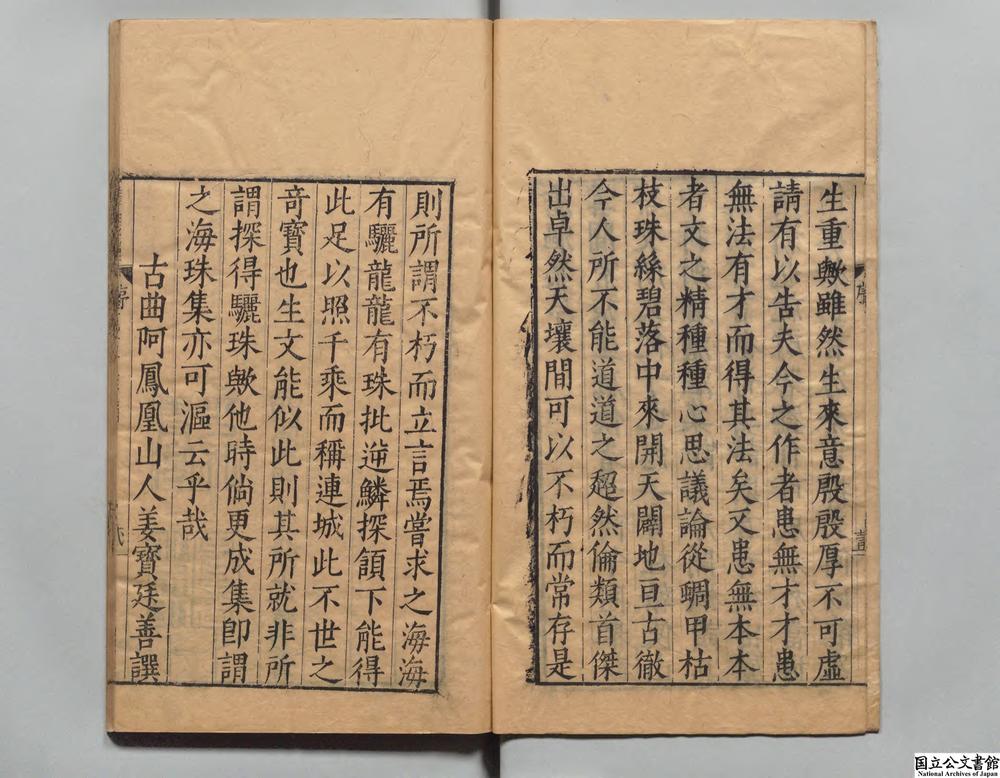 生重歟雖然生來意殷殷厚不可虛
請有以告夫今之作者患無才才患
無法有才而得其法矣又患無本本
者文之精種種心思議論從蜩甲枯
枝珠絲碧落中來開天闢地亘古徹
今人所不能道道之超然倫類首傑
出卓然天壤間可以不朽而常存是
序
則所謂不朽而立言焉嘗求之海海
有驪龍龍有珠批逆鱗探頷下能得
此足以照千乘而稱連城此不世之
奇寶也生文能似此則其所就非所
謂探得驪珠歟他時倘更成集即謂
之海珠集亦可漚云乎哉
古曲阿鳳凰山人姜寶廷善譔
序
国立公文書館
National Archives of Japan